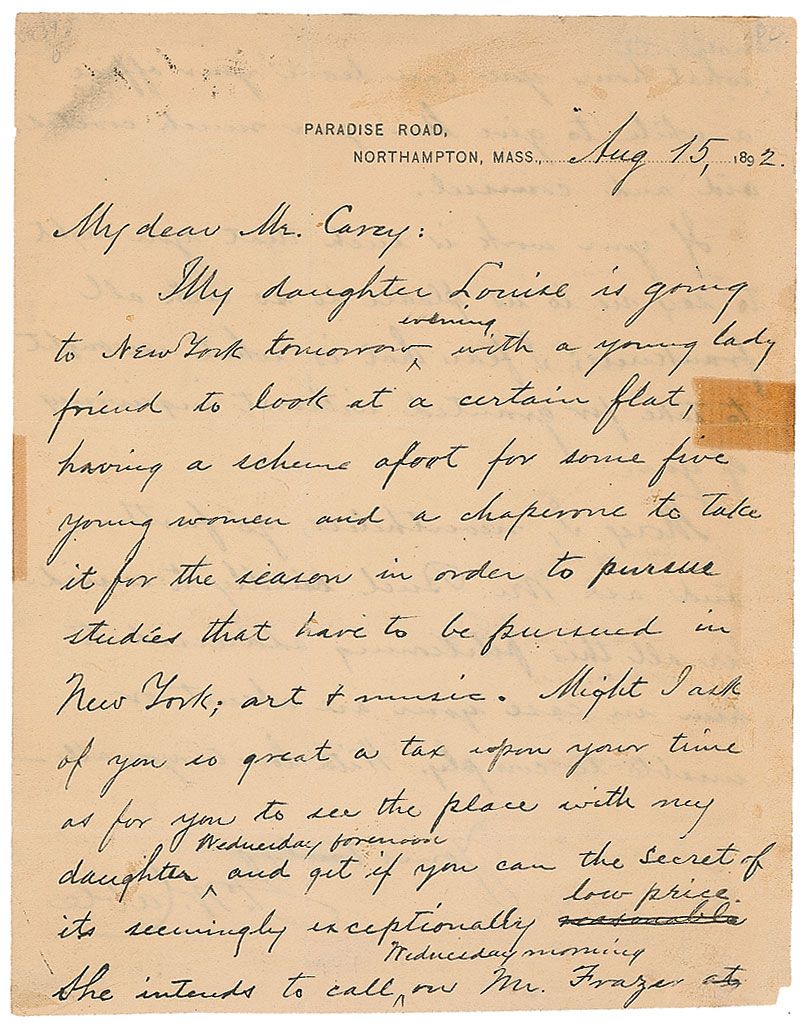 PARADISE ROAD,
NORTHAMPTON, MASS., Aug 15, 1892.
My dear Mr. Carey:
My daughter Louise is going
evening
to New York tomorrow ^ with a young lady
friend to look at a certain flat,
having a scheme afoot for some five
young women and a chaperone to take
it for the season in order to pursue
studies that have to be pursued in
New York; art & music. Might I ask
of you so great a tax upon your time
as for you to see the place with my
Wednesday forenoon
daughter ^ and get if you can the secret of
low price.
its seemingly exceptionally reasonable
Wednesday morning
She intends to call ^ on Mr. Frazer at